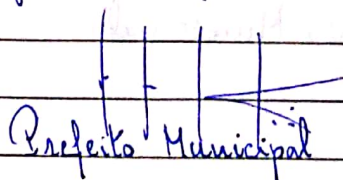 Prefeito Municipal